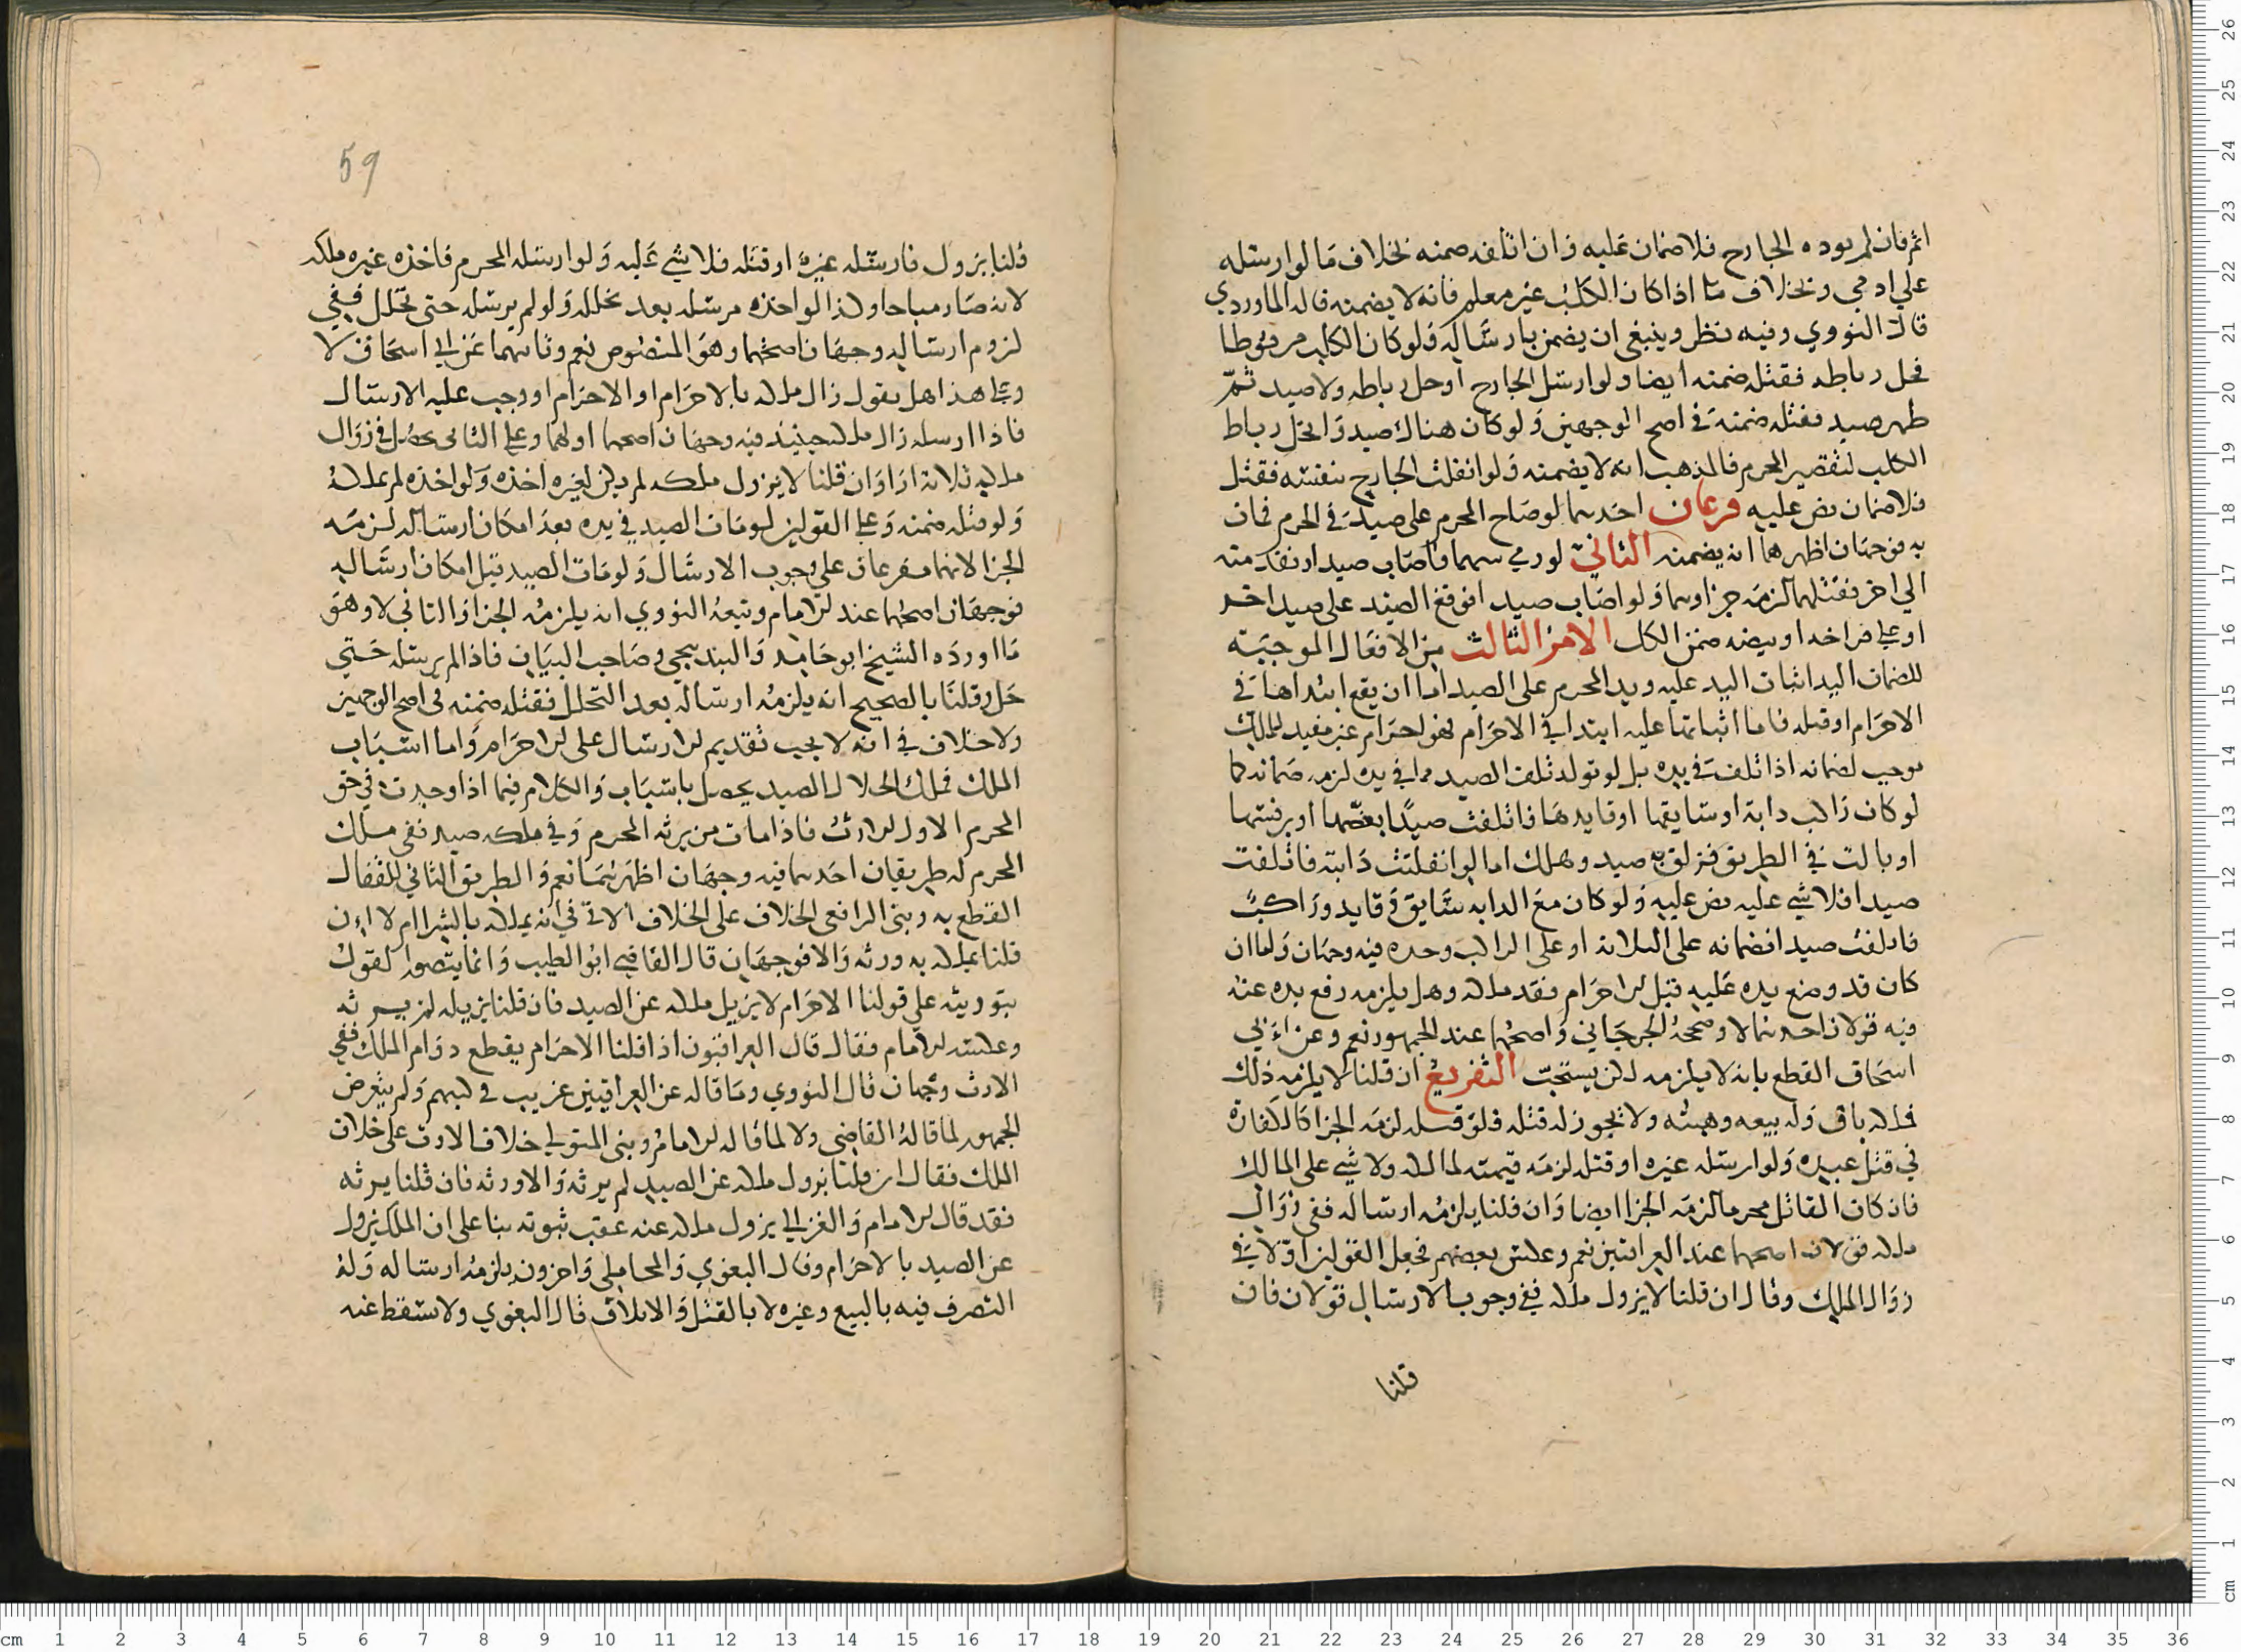 اثم فان لم يوده الجارح فلا ضمان عليه فان اتلفه ضمنه بخلاف مَا لو ارسله
علي ادمي وبخلاف ما اذا كان الكلب غير معلم فانه لا يضمنه قاله الماوردي
قال النووي وفيه نظر وينبغي ان يضمن بارسَاله وَلو كان الكلب مربوطا
فحل رباطه فقتله ضمنه ايضا ولو ارسل الجارح او حل رباطه ولا صيد ثمّ
ظهر صيد فقتله ضمنه في اصح الوجهين وَلو كان هناك صيد وَانحل رباط
الكلب لتقصير المحرم فالمذهب انه لا يضمنه وَلو انفلت الجارح بنفسه فقتل
فلا ضمان نص عليه فرعان احدهما لو صاح المحرم على صيد في الحرم فمات
به فوجهان اظهرهما انه يضمنه الثانيّ لو رمي سهما فاصَاب صيدا ونفد منه
الي اخر فقتلهما لزمه جزاوهما وَلو اصَاب صيدا فوقع الصيد على صيد اخر
او على فراخه او بيضه ضمن الكل الامر الثالث من الافعَال الموجبَة
للضمان اليد اثبات اليد عليه ويد المحرم على الصيد اما ان يقع ابتداها في
الاحرَام او قبله فاما اثباتها عليه ابتدا في الاحرَام فهو حرَام غير مفيد للملك
موجب لضمانه اذا تلف في يده بل لو تولد تلف الصيد مما في يده لزمه ضمانه كما
لو كان راكب دابة او سايقها او قايدهَا فاتلفت صيدًا بعضّها او برفسها
او بالت في الطريق فزلق به صيد وهلك اما لو انفلتت دَابته فاتلفت
صيدا فلا شي عليه نص عليه وَلو كان معَ الدابه سَايق وَقايد ورَاكبٌ
فاتلفت صيدا فضمانه على الثلاثة او على الراكب وحده فيه وجهان وَاما ان
كان قد وضع يده عَليه قبل الاحرَام فقد ملكه وهل يلزمه رفع يده عنه
فيه قولان احدهما لا وصححهُ الجرجَاني وَاصحُهما عند الجمهور نعم وعن ابي
اسحَاق القطع بانه لا يلزمه لكن يستحبّ التفريعُ ان قلنا لا يلزمه ذلك
فملكه باق وَله بيعه وهبته ولا يجوز له قتله فلوَ قتله لزمَه الجزا كالكفارة
في قتل عبيده وَلو ارسله غيره او قتله لزمَه قيمته لمالكه ولا شي على المالك
فان كان القاتل محرما لزمَه الجزا ايضا وَان قلنا يلزمُه ارساله ففي زوَال
ملكه قولان اصحهما عند العراقيين نعم وعكس بعضهم فجعل القولين اوّلا في
زوَال الملك وقال ان قلنا لا يزول ملكه ففي وجوب الارسال قولان فان
قلنا
59
قلنا يزول فارسَله غيرهُ او قتله فلا شي عَليه وَلو ارسله المحرم فاخذه غيره ملكه
لانه صَار مباحا وكذا لو اخذه مرسله بعد تحلله وَلو لم يرسله حتى تحلل ففي
لزوم ارسَاله وجهَان اصحّهما وهوَ المنصُوص نعم وثانيهما عَن ابي اسحَاق لا
وعلى هذا هل يقول زال ملكه بالاحرَام او الاحرَام اوجب عليه الارسَال
فاذا ارسله زال ملكه حينيذ فيه وجهان اصحهما اولهما وعلى الثاني يحصل في زوَال
ملكه ثلاثة ارَا وَان قلنا لا يزول ملكه لم يكن لغيره اخذه وَلو اخذه لم يملكهُ
وَلو قتله ضمنه وَعلى القولين لو مَات الصيد في يده بعدَ امكان ارساله لزمَه
الجزا لانهما مفرعان على وجوب الارسَال وَلو مَات الصيد قبل امكان ارسَاله
فوجهَان اصحُهما عند الامام وتبعهُ النووي انه يلزمُه الجزا وَالثاني لا وهوَ
مَا اوردَه الشيخ ابو حَامد وَالبندنيجي وصَاحب البيَان فاذا لم يرسله حَتي
حَل وقلنَا بالصحيح انه يلزمُه ارساله بعد التحلل فقتله ضمنه في اصح الوجهين
ولا خلاف في انه لا يجب تقديم الارسال على الاحرَام وَاما اسْبَاب
الملك فملك الحلال الصيد يحصل باسبَاب وَالكلام فيما اذا وجدت في حق
المحرم الاول الارثُ فاذا مات من يرثه المحرم وَفي ملكه صيد ففي مملك
المحرم له طريقان احدهما فيه وجهَان اظهرهُمَا نعم وَالطريق الثاني للقفال
القطع به وبنى الرافعي الخلاف على الخلاف الاتي في انه يملكه بالشرا ام لا ان
قلنا يملكه به ورثه وَالا فوجهَان قال القاضي ابوُ الطيب وَانما يتصور القول
بتوريثه على قولنا الاحرَام لا يزيل ملكه عن الصيد فان قلنا يزيله لم يرثه
وعكسَه الامام فقال قال العراقيون اذا قلنا الاحرَام يقطع دوَام الملك ففي
الارث وجْهان قال النووي ومَا قاله عن العراقيين غريب في كتبهم وَلم يتعرض
الجمهور لما قالهُ القاضي ولا لما قاله الامامُ وبنى المتولي خلاف الارث على خلاف
الملك فقال ان قلنا يزول ملكه عن الصيد لم يرثه وَالا ورثه فان قلنا يرثه
فقد قال الامام وَالغزالي يزول ملكه عنه عقب ثبوته بنا على ان الملك يزول
عن الصيد بالاحرَام وقال البغوي وَالمحاملي وَاخرون يلزمُه ارساله وَلهُ
التصرف فيه بالبيع وغيره لا بالقتل وَالاتلاف قال البغوي ولا يسقط عنه